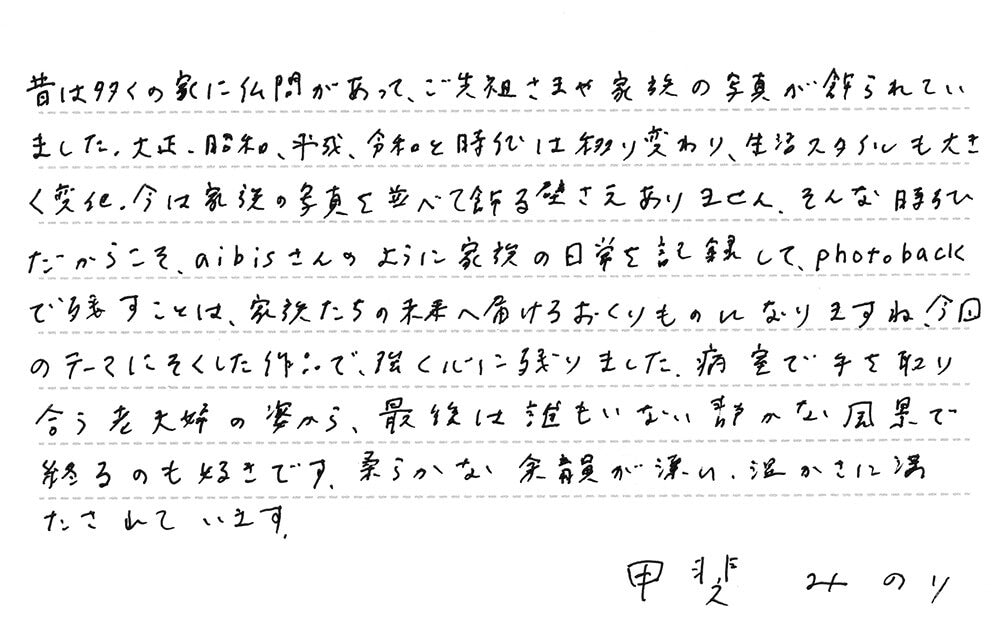 昔は多くの家に仏間があって、ご先祖さまや家族の写真が飾られてい
ました。大正、昭和、平成、令和と時代は移り変わり、生活スタイルも大き
く変化。今は家族の写真を並べて飾る壁さえありません。そんな時代
だからこそ、aibisさんのように家族の日常を記録して、photoback
で残すことは、家族たちの未来へ届けるおくりものになりますね。今回
のテーマにそくした作品で、強く心に残りました。病室で手を取り
合う老夫婦の姿から、最後は誰もいない静かな風景で
終るのも好きです。柔らかな余韻が漂い、温かさに満
たされています。
甲斐 みのり